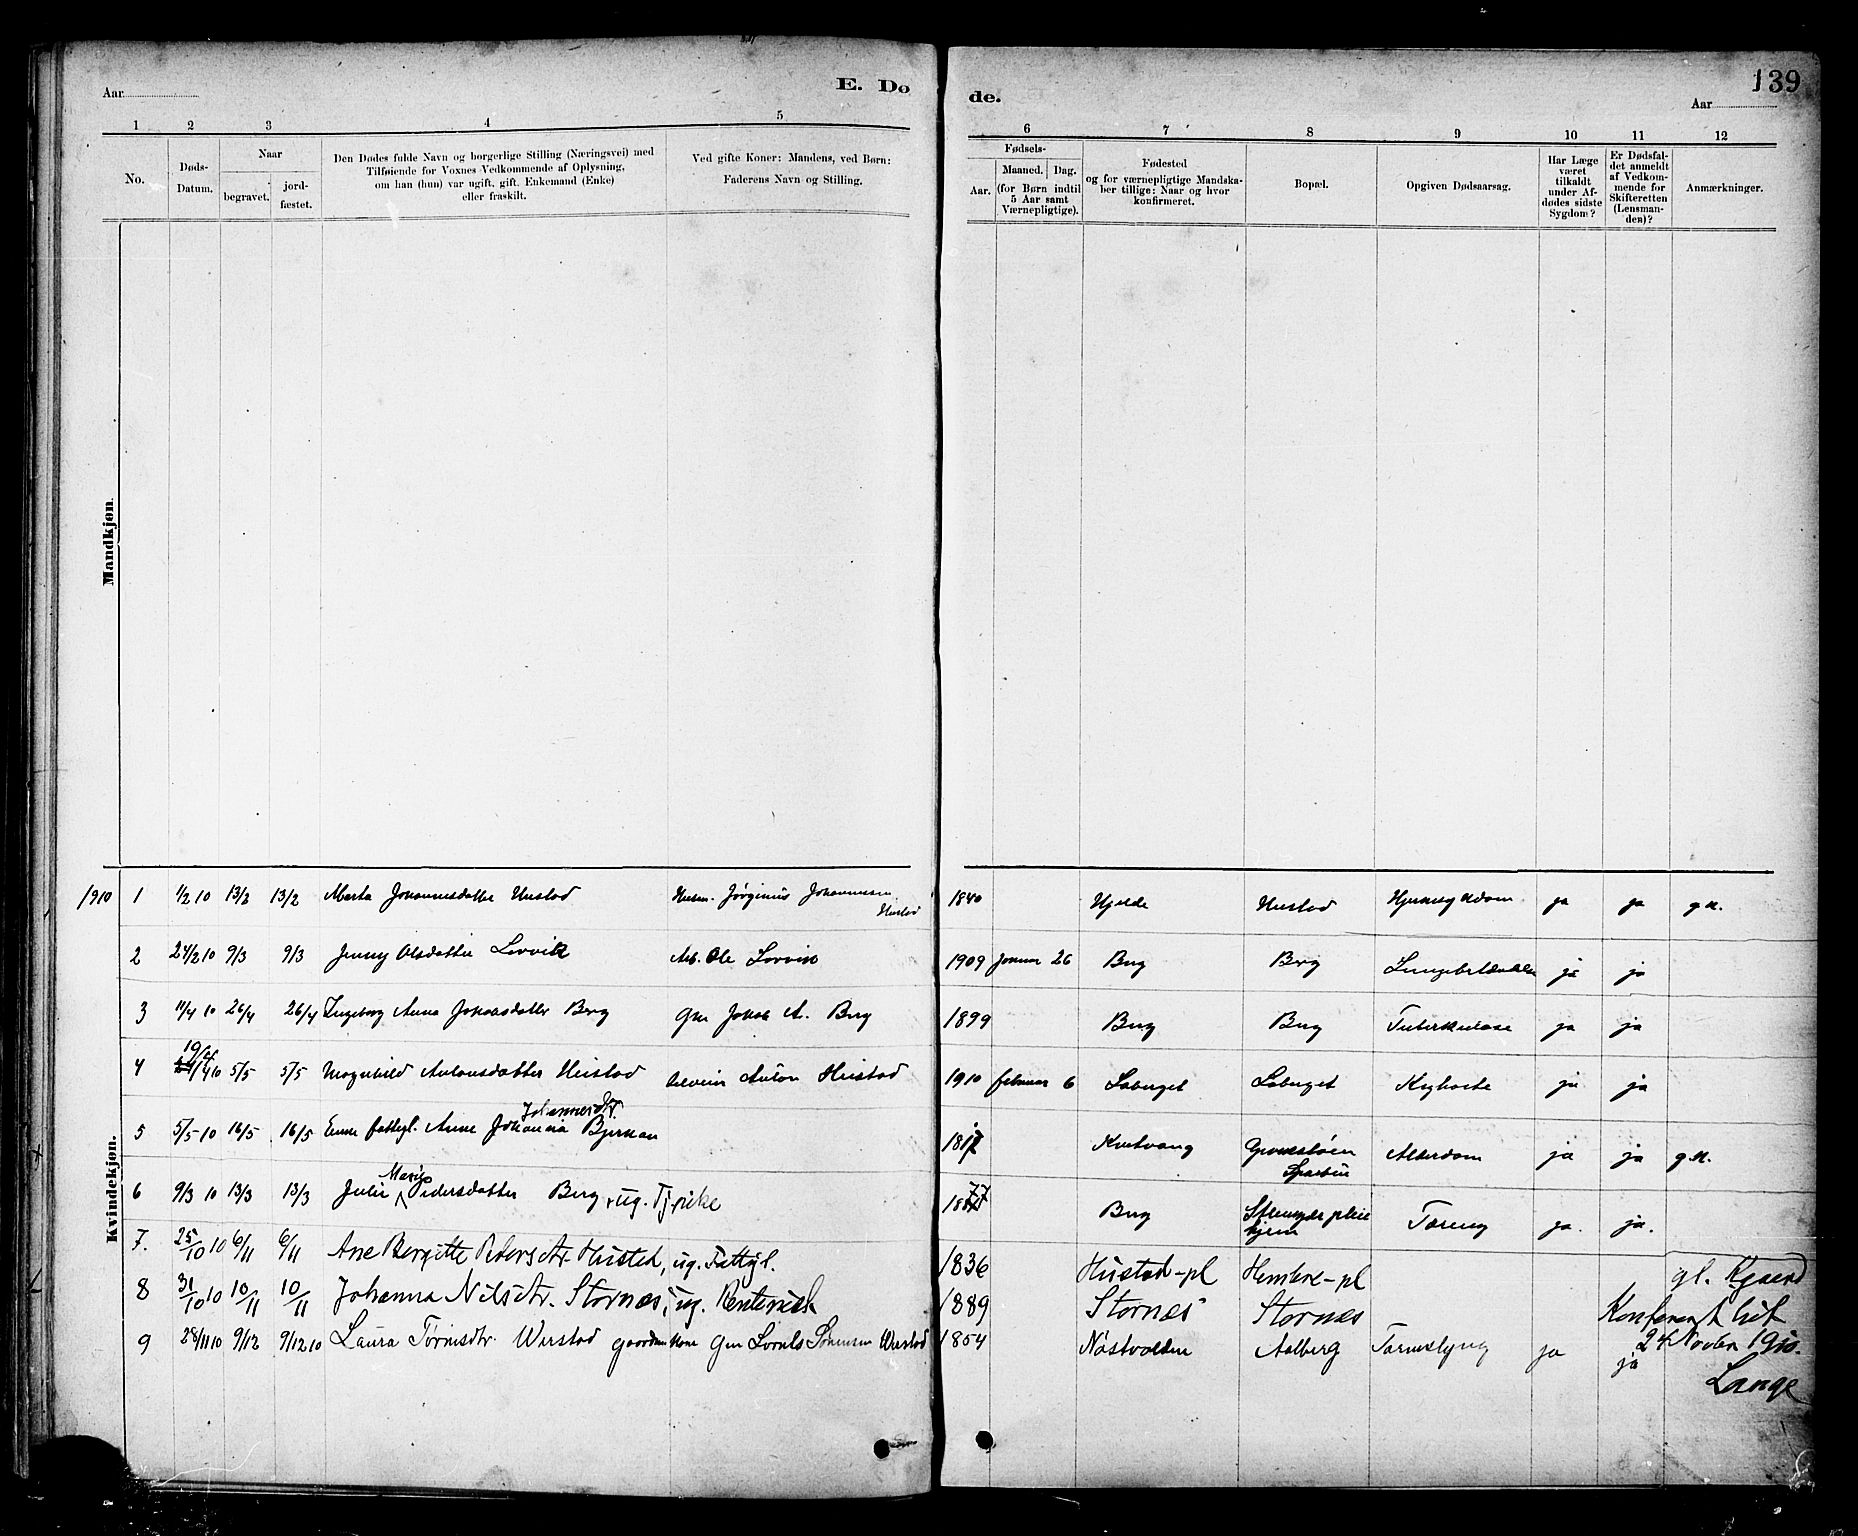 139
E. Dø
de.
Aar
Aar
1 2 3 4 5 6 7 8 9 10 11 12
No.
Døds-
Datum.
Naar
begravet.
jord-
fæstet.
Den Dødes fulde Navn og borgerlige Stilling (Næringsvei) med
Tilføiende for Voxnes Vedkommende af Oplysning,
om han (hun) var ugift, gift, Enkemand (Enke)
eller fraskilt.
Ved gifte Koner: Mandens, ved Børn:
Faderens Navn og Stilling.
Fødsels-
Aar.
Maaned. Dag.
(for Børn indtil
5 Aar samt
Værnepligtige).
Fødested
og for værnepligtige Mandska-
ber tillige: Naar og hvor
konfirmeret.
Bopæl.
Opgiven Dødsaarsag.
Har Læge
været
tilkaldt
under Af-
dødes sidste
Sygdom?
Er Dødsfal-
det anmeldt
af Vedkom-
mende for
Skifteretten
(Lensman-
den)?
Anmærkninger.
Mandkjøn.
Kvindekjøn.
1910 1 1/2 10 13/2 13/2 Marta Johannesdatter Hustad Husm. Jørginus Johannessen Hustad 1840 Hjelde Hustad Hjertesygdom ja ja g.k.
2 24/2 10 9/3 9/3 Jenny Olsdatter Lorvik Arb. Ole Lorvik 1909 januar 26 Berg Berg ja ja
3 11/4 10 26/4 26/4 Ingeborg Anna Jakobsdatter Berg Gm Jakob A. Berg 1899 Berg Berg Tuberkulose ja ja
4 19/4 10 5/5 5/5 Magnhild Antonsdatter Hustad Anton Hustad 1910 februar 6 Laberget Laberget Kighoste ja ja
5 5/5 10 16/5 16/5 Enke fattigl. Anne Johanna Johannesdtr. Bjerkan Kvitvang Sparbu Alderdom ja ja g.k.
6 9/3 10 13/3 13/3 Julie Marie Pedersdatter Berg, ug. Tj.pike 1877 Berg pleie
hjem Tæring ja. ja.
7. 25/10 10 6/11 6/11 Ane Bergitte Pedersdtr. Hustad, ug. Fattigl. 1836 Hustad-pl Hembre-pl
8 31/10 10 10/11 10/11 Johanna Nilsdtr. Stornæs, ug. 1889 Stornæs Stornæs
9 28/11 10 9/12 9/12 10 Laura Tørrisdtr. Werstad gaardm kone Gm Sørensen Werstad 1854 Aalberg Tarmslyng ja ja
gl. Kjaerd
Konferent hit
24 Novbr 1910.
Lange